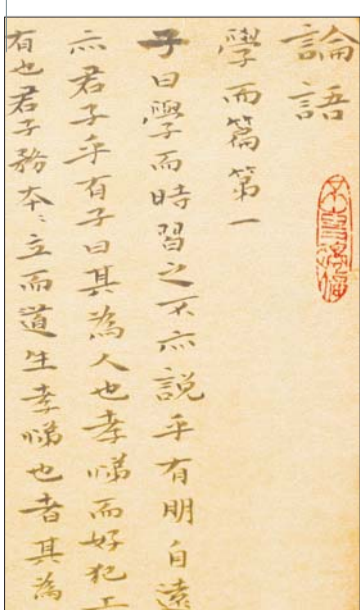 論語
學而篇第一
子曰學而時習之不亦説乎有明自遠
亦君子乎有子曰其為人也孝悌而好犯上
有也君子務本〻立而道生孝悌也者其為